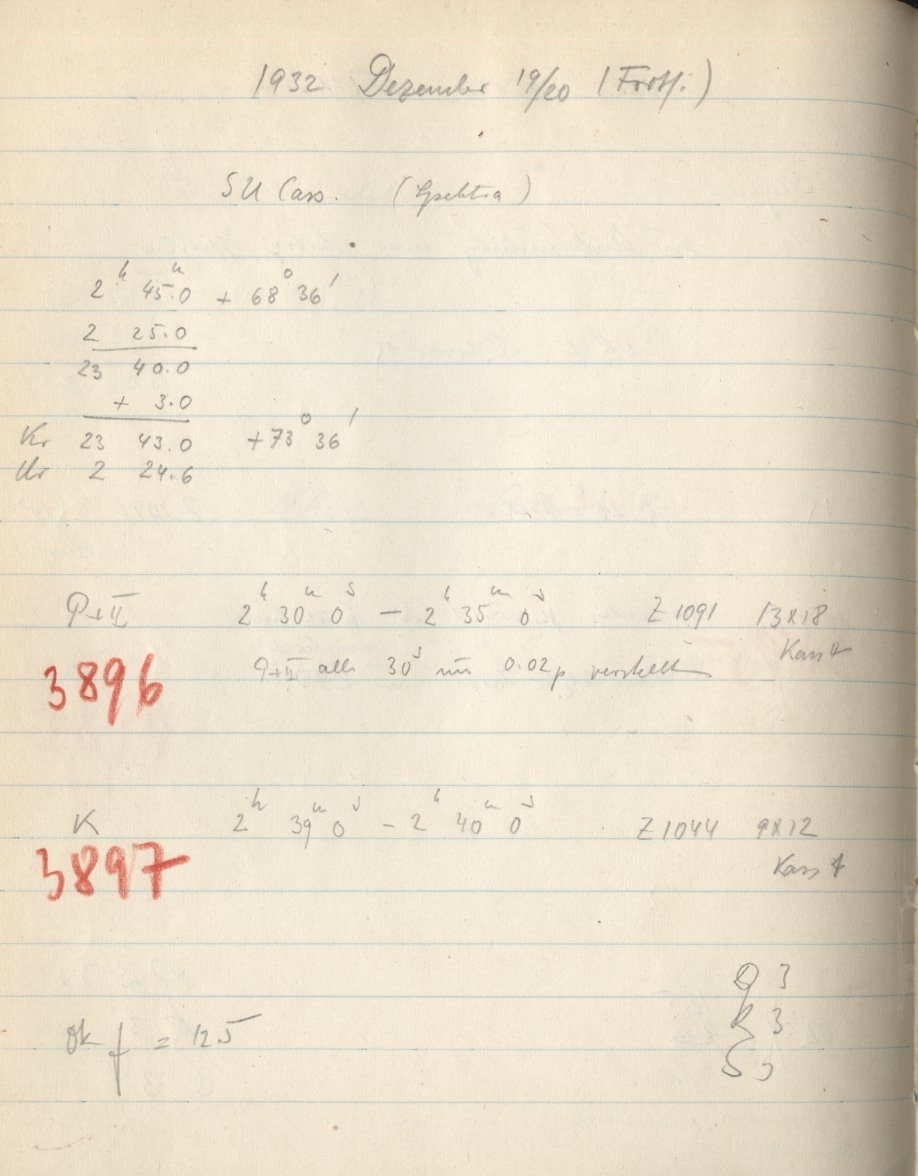 1932 Dezember 19/20 (Forts.)
SU Cass. (Spektra)
2ʰ 45ᵐ.0 + 68° 36′
2 25.0
23 40.0
+ 3.0
Kr 23 43.0 +73° 36′
Ur 2 24.6
P+II 2ʰ 30ᵐ 0ˢ – 2ʰ 35ᵐ 0ˢ Z 1091 13x18
3896 P+II alle 30ˢ um 0.02p verstellt Kass
K 2ʰ 39ᵐ 0ˢ – 2ʰ 40ᵐ 0ˢ Z 1044 9x12
3897 Kass
Q 3
R 3
S 3
Ok f = 12.5